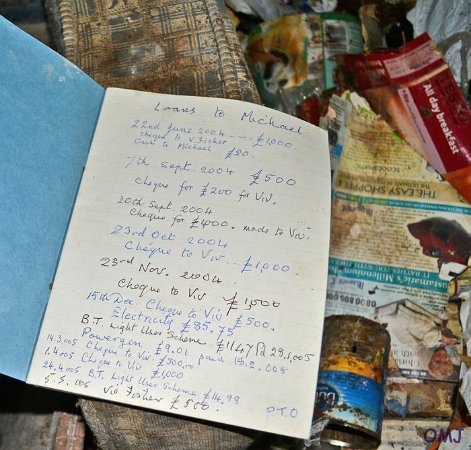 Loans to Michael
22nd June 2004 --- £1,000
cheque to V Fisher
Cash to Michael £20.
7th Sept. 2004 £500
cheque for £200 for Viv.
20th Sept. 2004
Cheque for £400. made to Viv.
23rd Oct 2004
Cheque to Viv... £1,000
23rd Nov. 2004.
Cheque to Viv £1,500
15th Dec. Cheque to Viv £500.
Electricity £85.75
B.T. Light User Scheme £11.47 Pd 29.1.005
Powergen £9.01 paid 15.2.005
14.3.005 Cheque to Viv £500.00
1.4.005 Cheque to Viv £1,000
24.4.005 B.T. Light User Scheme £14.98
5.5.005 Viv Fisher £500.
P.T.O
All day breakfast
THE EASY SHOPPE
OMJ